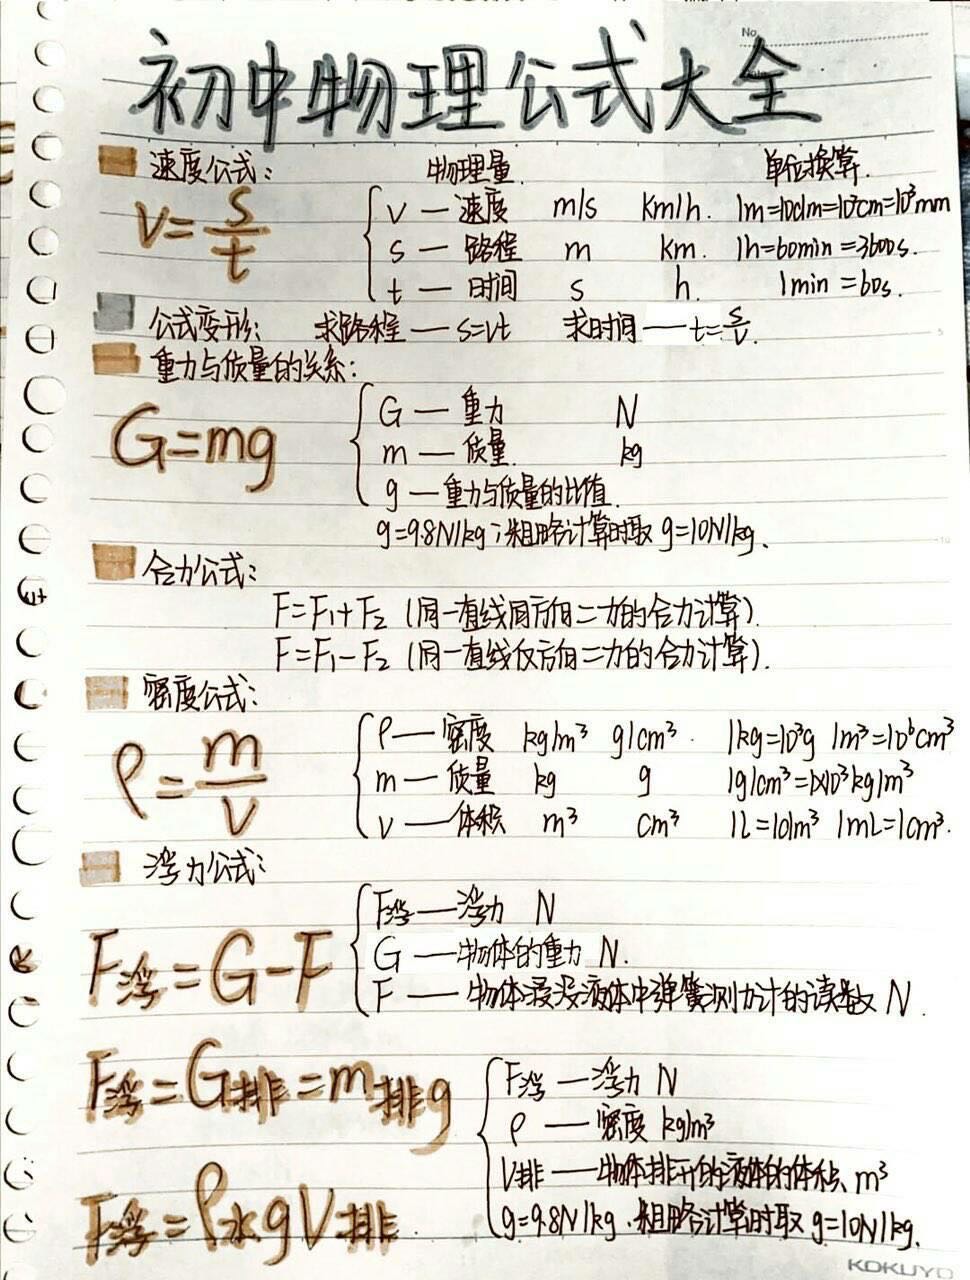 No
初中物理公式大全
速度公式: 物理量 单位换算
v=s/t
v — 速度 m/s km/h. 1m=10dm=10²cm=10³mm
s — 路程 m km. 1h=60min=3600s.
t — 时间 s h. 1min=60s.
公式变形: 求路程 — s=vt 求时间 — t=s/v.
重力与质量的关系:
G=mg
G — 重力 N
m — 质量 kg
g — 重力与质量的比值.
g=9.8N/kg; 粗略计算时取 g=10N/kg.
合力公式:
F=F₁+F₂ (同一直线同方向二力的合力计算).
F=F₁-F₂ (同一直线反方向二力的合力计算).
密度公式:
ρ=m/V
ρ — 密度 kg/m³ g/cm³. 1kg=10³g 1m³=10⁶cm³
m — 质量 kg g 1g/cm³=1×10³kg/m³
V — 体积 m³ cm³ 1L=1dm³ 1mL=1cm³.
浮力公式:
F浮=G-F
F浮 — 浮力 N
G — 物体的重力 N.
F — 物体浸没液体中弹簧测力计的读数 N.
F浮=G排=m排g
F浮=ρ水gV排.
F浮 — 浮力 N
ρ — 密度 kg/m³
V排 — 物体排开的液体的体积 m³
g=9.8N/kg. 粗略计算时取 g=10N/kg.
KOKUYO